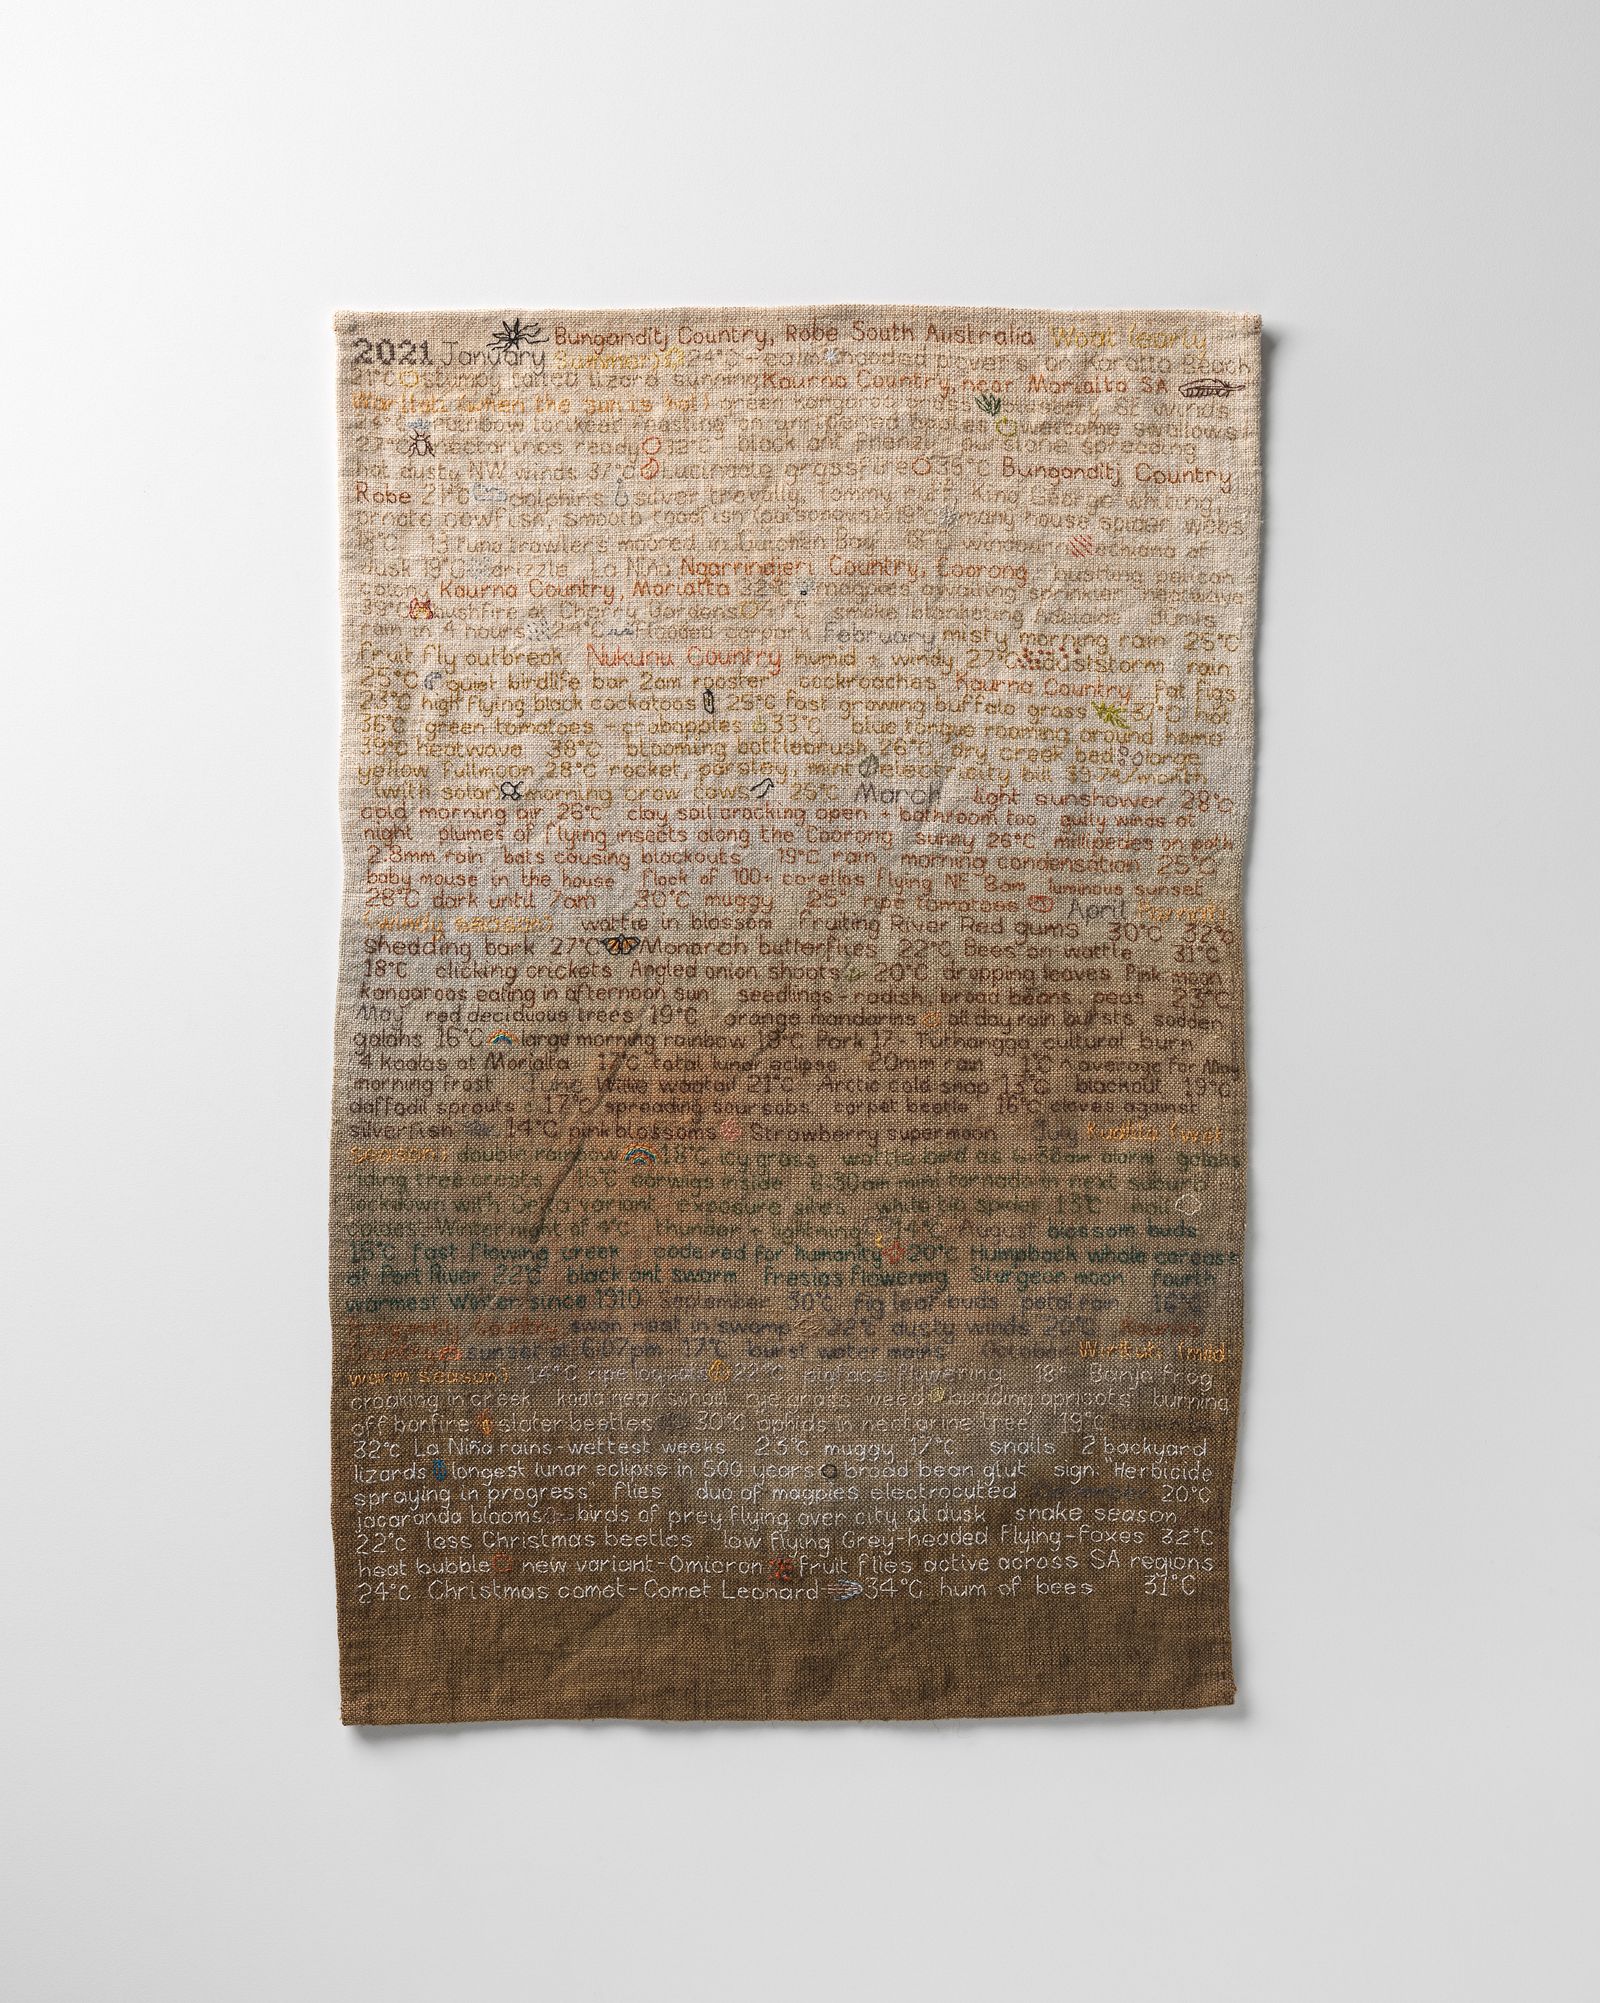 2021 January Bunganditj Country, Robe South Australia Woat (early
Summer) 24°C - calm hooded plovers on Karatta Beach
21°C stumpy tailed lizard sunning Kaurna Country, near Morialta SA
Warltati (when the sun is hot) green kangaroo grass blustery SE winds
24°C rainbow lorikeet feasting on unripened apples welcome swallows
27°C nectarines ready 32°C black ant frenzy spreading
hot dusty NW winds 37°C Lucindale grassfire 35°C Bunganditj Country
Robe 21°C dolphins silver trevally, Tommy ruff, King George whiting,
ornate cowfish, smooth toadfish (poisonous) 19° many house spider webs
18°C 13 tuna trawlers moored in Guichen Bay 18°C echidna at
dusk 19°C drizzle La Niña Ngarrindjeri Country, Coorong pelican
Kaurna Country, Morialta 32°C magpies awaiting sprinkler heatwave
39°C bushfire at Cherry Gardens 41°C smoke blanketing Adelaide
rain in 4 hours flooded carpark February misty morning rain 25°C
fruit fly outbreak Nukunu Country humid + windy 27°C duststorm rain
25°C quiet birdlife bar 2am rooster cockroaches Kaurna Country fat figs
23°C high flying black cockatoos 25°C fast growing buffalo grass 37°C hot
36°C green tomatoes - crabapples 33°C blue tongue roaming around home
39°C heatwave 38°C blooming bottlebrush 26°C dry creek bed large
yellow fullmoon 28°C rocket, parsley, mint electricity bill $9.74/month
(with solar) morning crow caws 25°C March light sunshower 28°C
cold morning air 26°C clay soil cracking open + bathroom too gully winds at
night plumes of flying insects along the Coorong sunny 26°C millipedes on path
2.8mm rain bats causing blackouts 19°C rain morning condensation 25°C
baby mouse in the house flock of 100+ corellas flying NE 8am luminous sunset
28°C dark until 7am 30°C muggy 25° ripe tomatoes April Parnati
(windy season) wattle in blossom fruiting River Red gums 30°C 32°C
shedding bark 27°C Monarch butterflies 22°C Bees on wattle 31°C
18°C clicking crickets Angled onion shoots 20°C dropping leaves Pink moon
Kangaroos eating in afternoon sun seedlings - radish, broad beans, peas 23°C
May red deciduous trees 19°C orange mandarins all day rain bursts sodden
galahs 16°C large morning rainbow 18°C Park 17 - Tuthangga cultural burn
4 koalas at Morialta 17°C total lunar eclipse 20mm rain 1°C ^ average for May
morning frost June Willie wagtail 21°C Arctic cold snap 13°C blackout 19°C
daffodil sprouts 17°C spreading soursobs carpet beetle 16°C cloves against
silverfish 14°C pink blossoms Strawberry supermoon July Kudlila (wet
season) double rainbow 18°C icy grass wattle bird as 6:38am alarm galahs
riding tree crests 15°C earwigs inside 6:30am mini tornado in next suburb
lockdown with Delta variant exposure sites white tip spider 13°C hail
coldest Winter night of 4°C thunder + lightning 14°C August blossom buds
15°C fast flowing creek code red for humanity 20°C Humpback whale carcass
at Port River 22°C black ant swarm Fresias flowering Sturgeon moon fourth
warmest Winter since 1910 September 30°C fig leaf buds petal rain 16°C
Bunganditj Country swan nest in swamp 22°C dusty winds 20°C Kaurna
Country sunset at 6:07pm 17°C burst water mains October Wirltuti (mid
warm season) 14°C ripe loquats 22°C flowering 18° Banjo frog
croaking in creek koala near weed budding apricots burning
off bonfire slater beetles 30°C aphids in nectarine tree 19°C November
32°C La Niña rains - wettest weeks 23°C muggy 17°C snails 2 backyard
lizards longest lunar eclipse in 500 years broad bean glut sign: "Herbicide
spraying in progress" flies duo of magpies electrocuted December 20°C
jacaranda blooms birds of prey flying over city at dusk snake season
22°C less Christmas beetles low flying Grey-headed flying-foxes 32°C
heat bubble new variant - Omicron fruit flies active across SA regions
24°C Christmas comet - Comet Leonard 34°C hum of bees 31°C